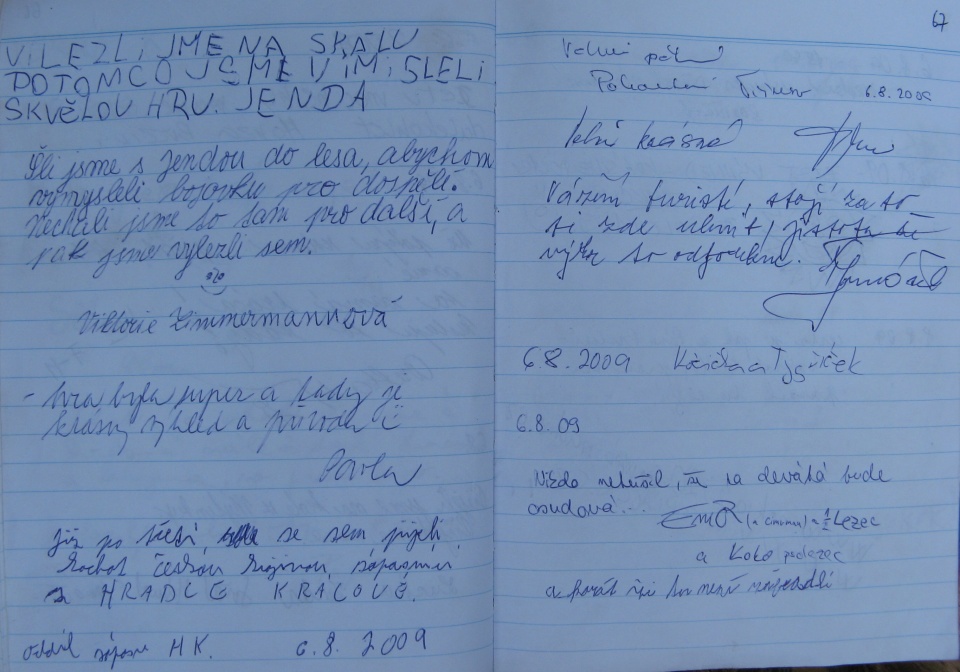 VILEZLI JME NA SKÁLU
POTOM CO JSME VIMISLELI
SKVĚLOU HRU. JENDA
Šli jsme s Jendou do lesa, abychom
vymysleli bojovku pro dospělí.
Nechali jsme to tam pro další, a
pak jsme vylezli sem.
Viktorie Zimmermannová
- hra byla super a tady je
krásný výhled a příroda
Pavla
již po třetí, se sem přijeli
kochat českou krajinou, zápasníci
z HRADCE KRÁLOVÉ.
oddíl zápasu HK. 6.8. 2009
67
Velmi
6.8.2009
Velmi krásné
Vážení turisté, stojí za to
si zde
výkon to
6.8.2009 Kačička a Tygříček
6.8.09
Nikdo netušil, že ta devátá bude
osudová...
EMR Lezec
a Koko podezec
a pořád